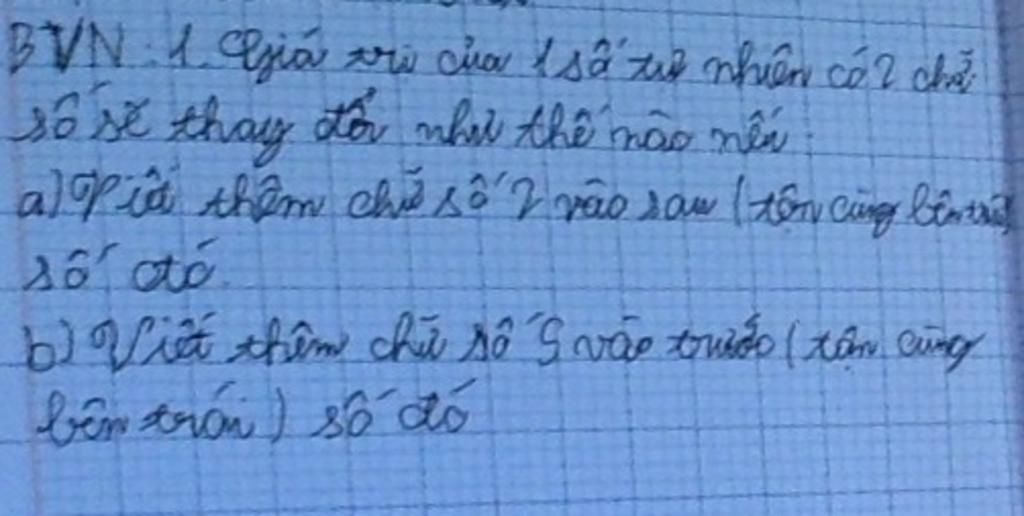 BVN: 1. Giá trị của 1 số tự nhiên có 2 chữ
số sẽ thay đổi như thế nào nếu:
a) Viết thêm chữ số 2 vào sau (tận cùng bên
số đó.
b) Viết thêm chữ số 5 vào trước (tận cùng
bên trái) số đó